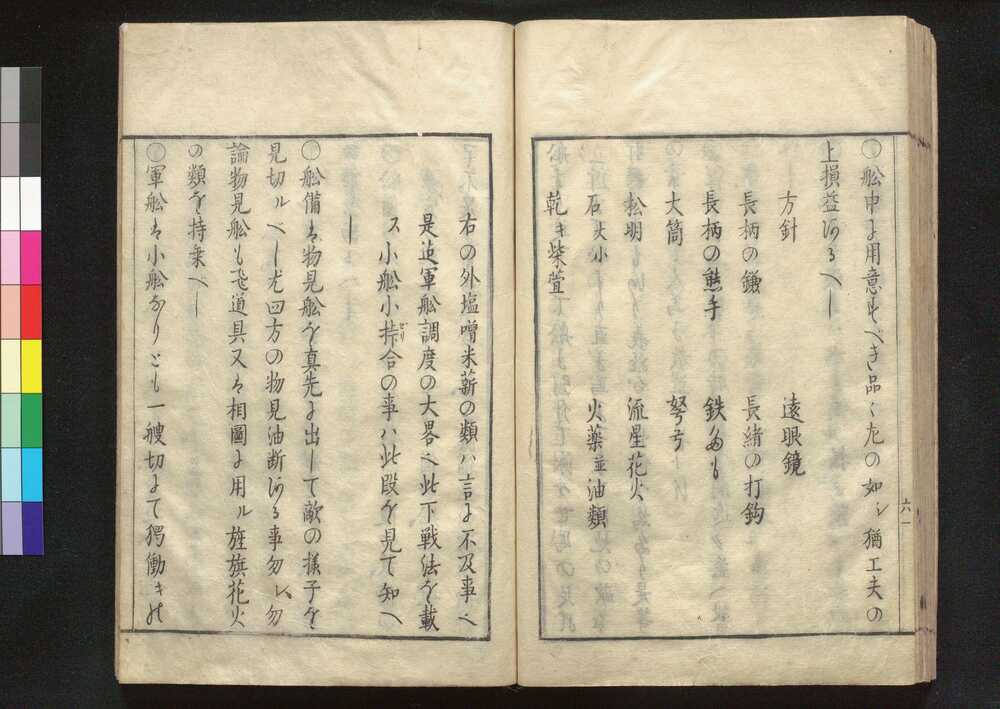 〇舩中に用意すべき品々左の如シ猶工夫の
上損益ある へー
方針 遠眼鏡
長柄の鎌 長緒の打鈎
長柄の熊手 鉄
大筒 弩弓
松明 流星花火
石大小 火薬並油類
乾キ柴萱
六一
右の外塩噌米薪の類ハ言に不及事也
是迄軍舩調度の大畧也此下戦法を載
ス小舩小持合の事ハ此段を見て知へ
ー
〇舩備は物見舩を真先に出して敵の様子を
見切ルべー尤四方の物見油断ある事勿レ勿
論物見舩も飛道具又は相圖に用ル旌旗花火
の類を持乗へー
〇軍舩は小舩なりとも一艘切にて獨働キ